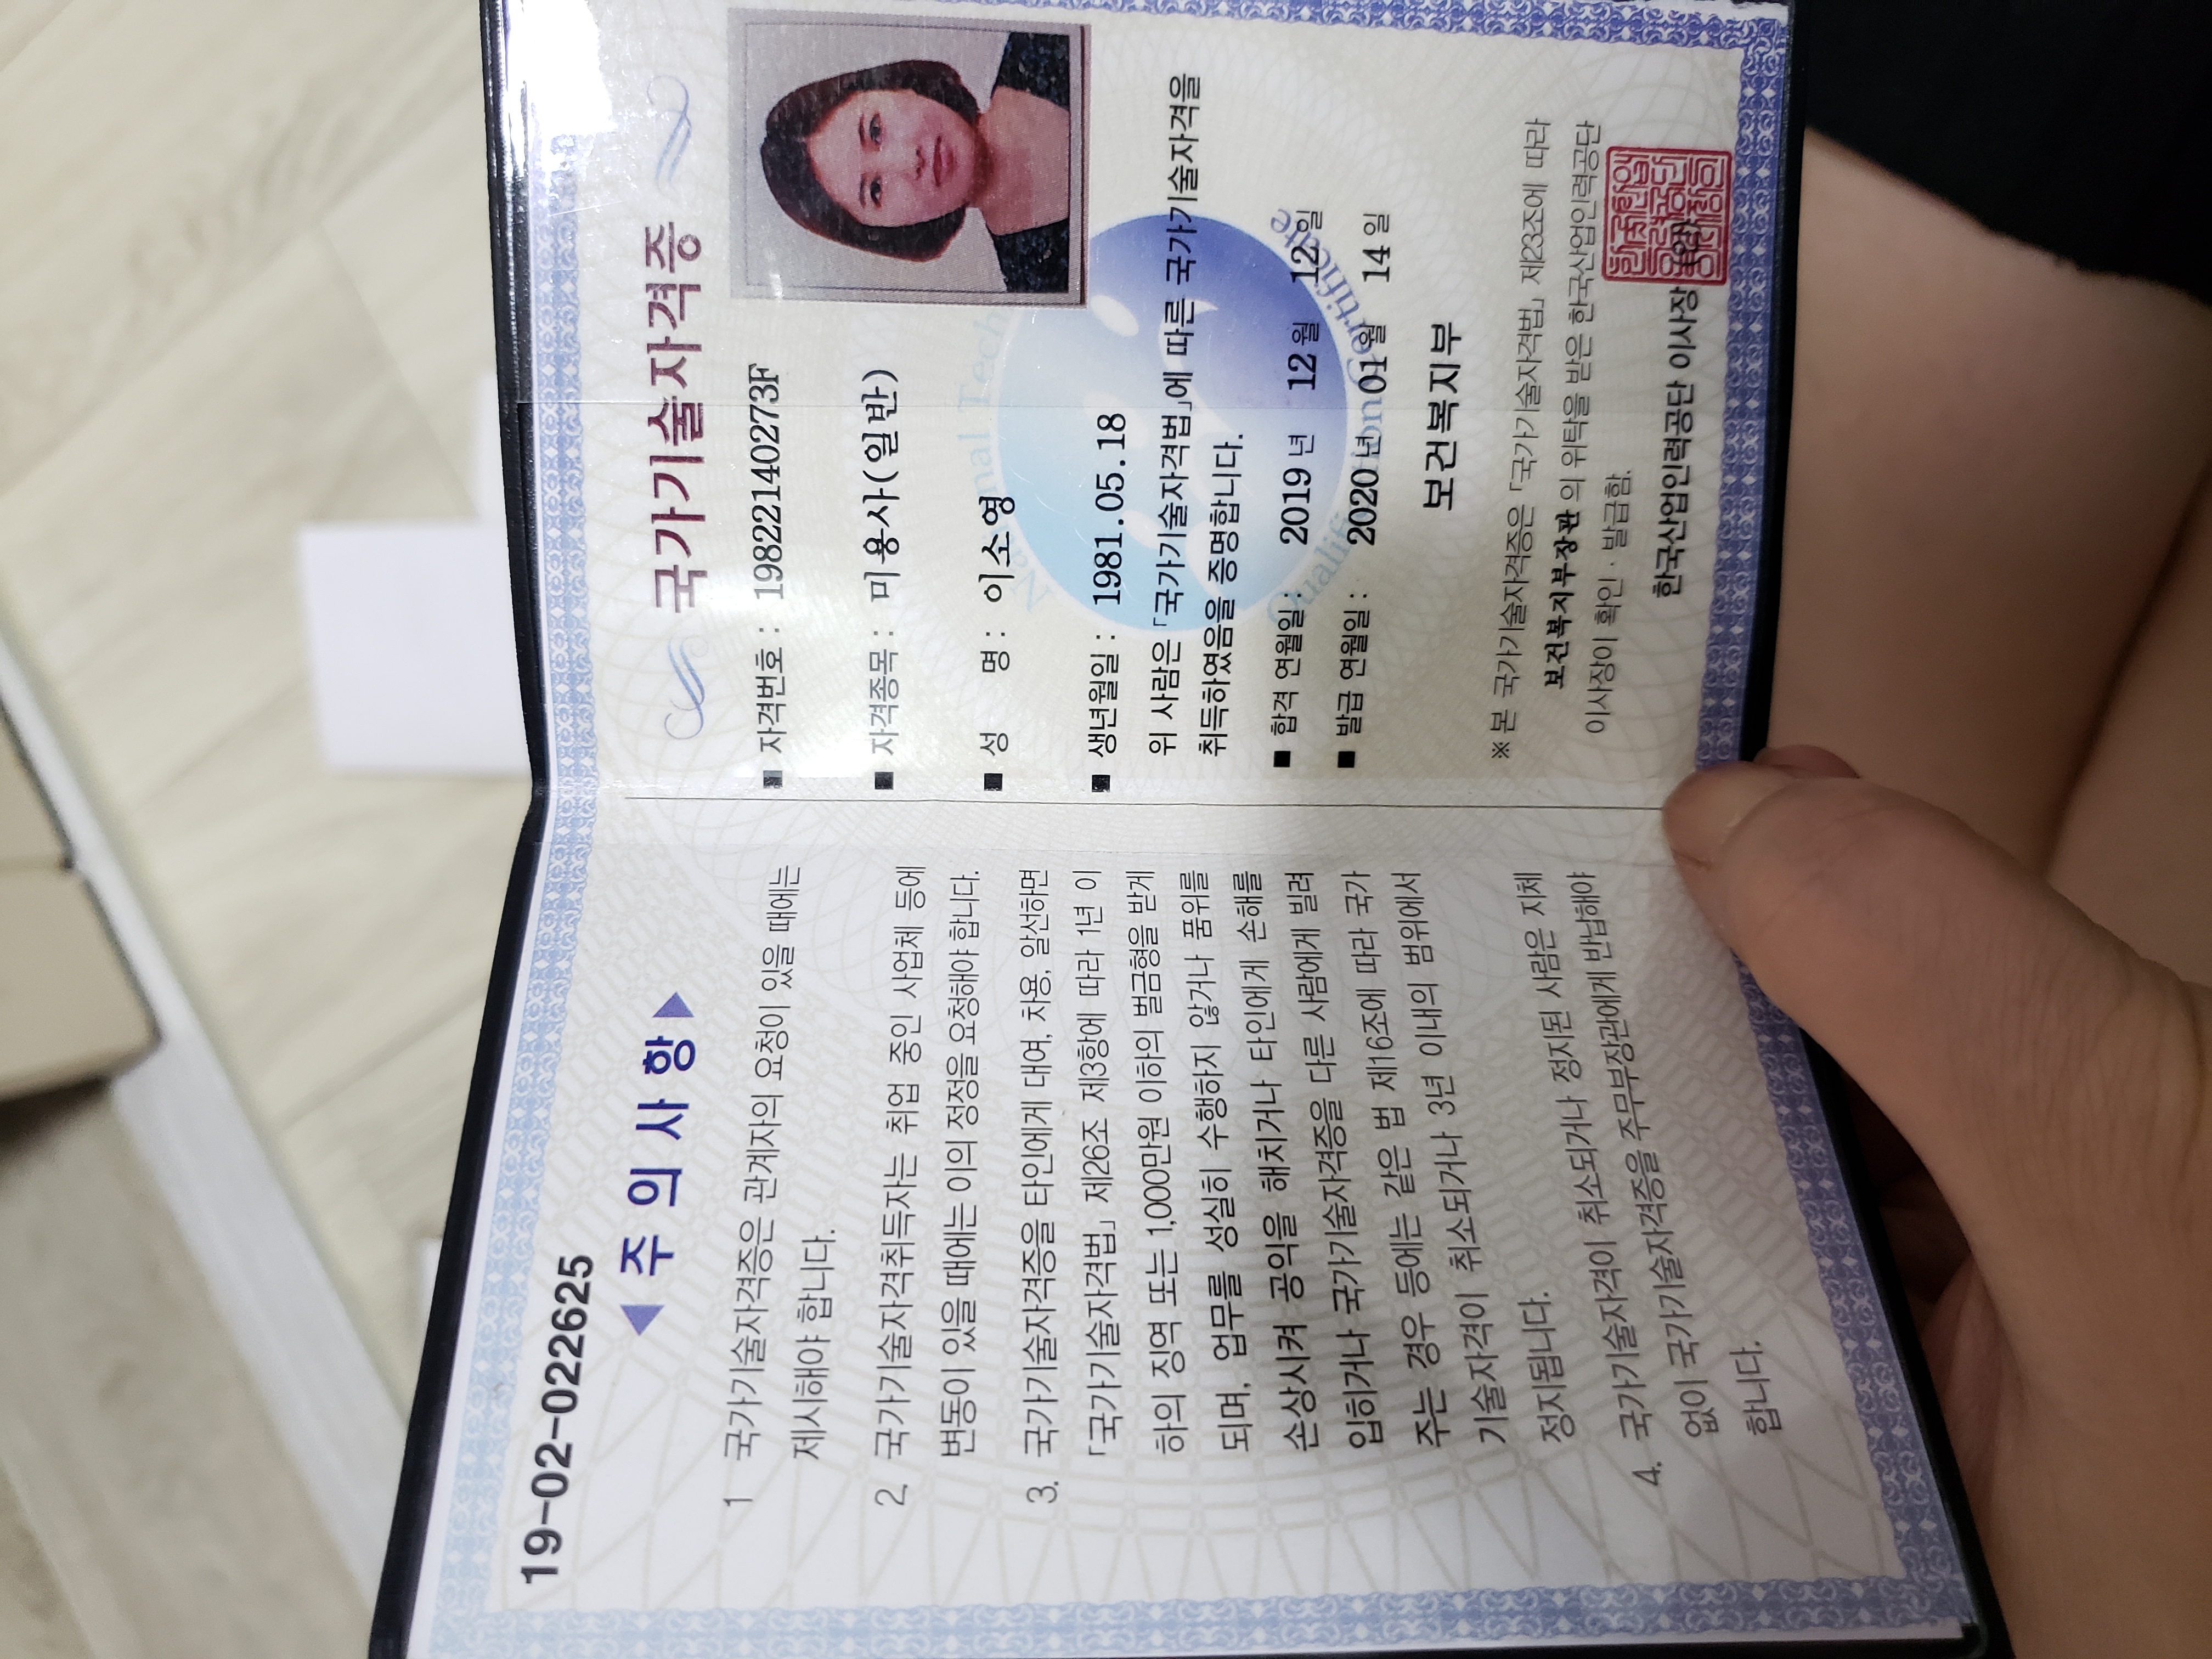 19-02-022625
◀ 주 의 사 항 ▶
1 국가기술자격증은 관계자의 요청이 있을 때에는
제시해야 합니다.
2. 국가기술자격취득자는 취업 중인 사업체 등에
변동이 있을 때에는 이의 정정을 요청해야 합니다.
3. 국가기술자격증을 타인에게 대여, 차용, 알선하면
「국가기술자격법」 제26조 제3항에 따라 1년 이
하의 징역 또는 1,000만원 이하의 벌금형을 받게
되며, 업무를 성실히 수행하지 않거나 품위를
손상시켜 공익을 해치거나 타인에게 손해를
입히거나 국가기술자격증을 다른 사람에게 빌려
주는 경우 등에는 같은 법 제16조에 따라 국가
기술자격이 취소되거나 3년 이내의 범위에서
정지됩니다.
4. 국가기술자격이 취소되거나 정지된 사람은 지체
없이 국가기술자격증을 주무부장관에게 반납해야
합니다.
국가기술자격증
■ 자격번호 : 19822140273F
■ 자격종목 : 미용사(일반)
■ 성 명 : 이소영
■ 생년월일 : 1981.05.18
위 사람은 「국가기술자격법」에 따른 국가기술자격을
취득하였음을 증명합니다.
■ 합격 연월일 : 2019 년 12 월 12 일
■ 발급 연월일 : 2020 년 01 월 14 일
보건복지부
※ 본 국가기술자격증은 「국가기술자격법」 제23조에 따라
보건복지부장관 의 위탁을 받은 한국산업인력공단
이사장이 확인 · 발급함.
한국산업인력공단 이사장